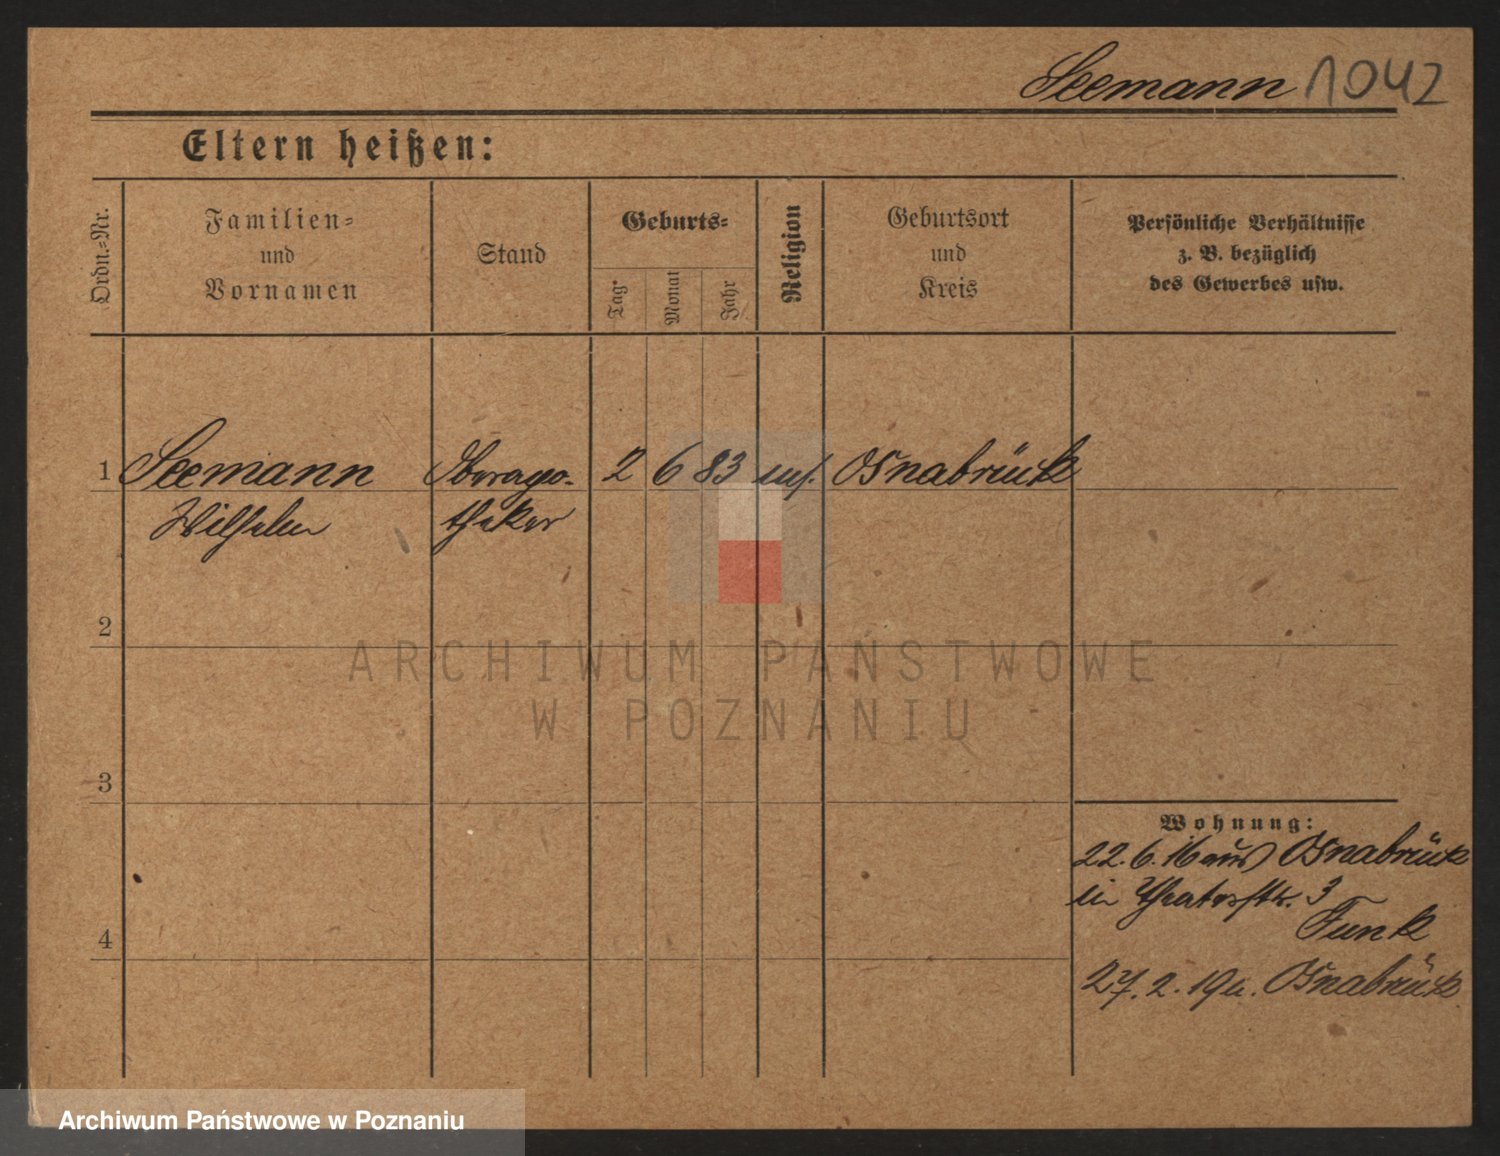 Seemann 1042
Eltern heißen:
Ordn.=Nr.
Familien=
und
Vornamen
Stand
Geburts=
Tag
Monat
Jahr
Religion
Geburtsort
und
Kreis
Persönliche Verhältnisse
z. B. bezüglich
des Gewerbes usw.
1 Seemann Oberapo- 2 6 83 luf. Osnabrück
Wilhelm theker
2
ARCHIWUM PAŃSTWOWE
W POZNANIU
3
Wohnung:
22. 6. 16 aus Osnabrück
in Theaterstr. 3
Funk
4
27. 2. 19 n. Osnabrück
Archiwum Państwowe w Poznaniu